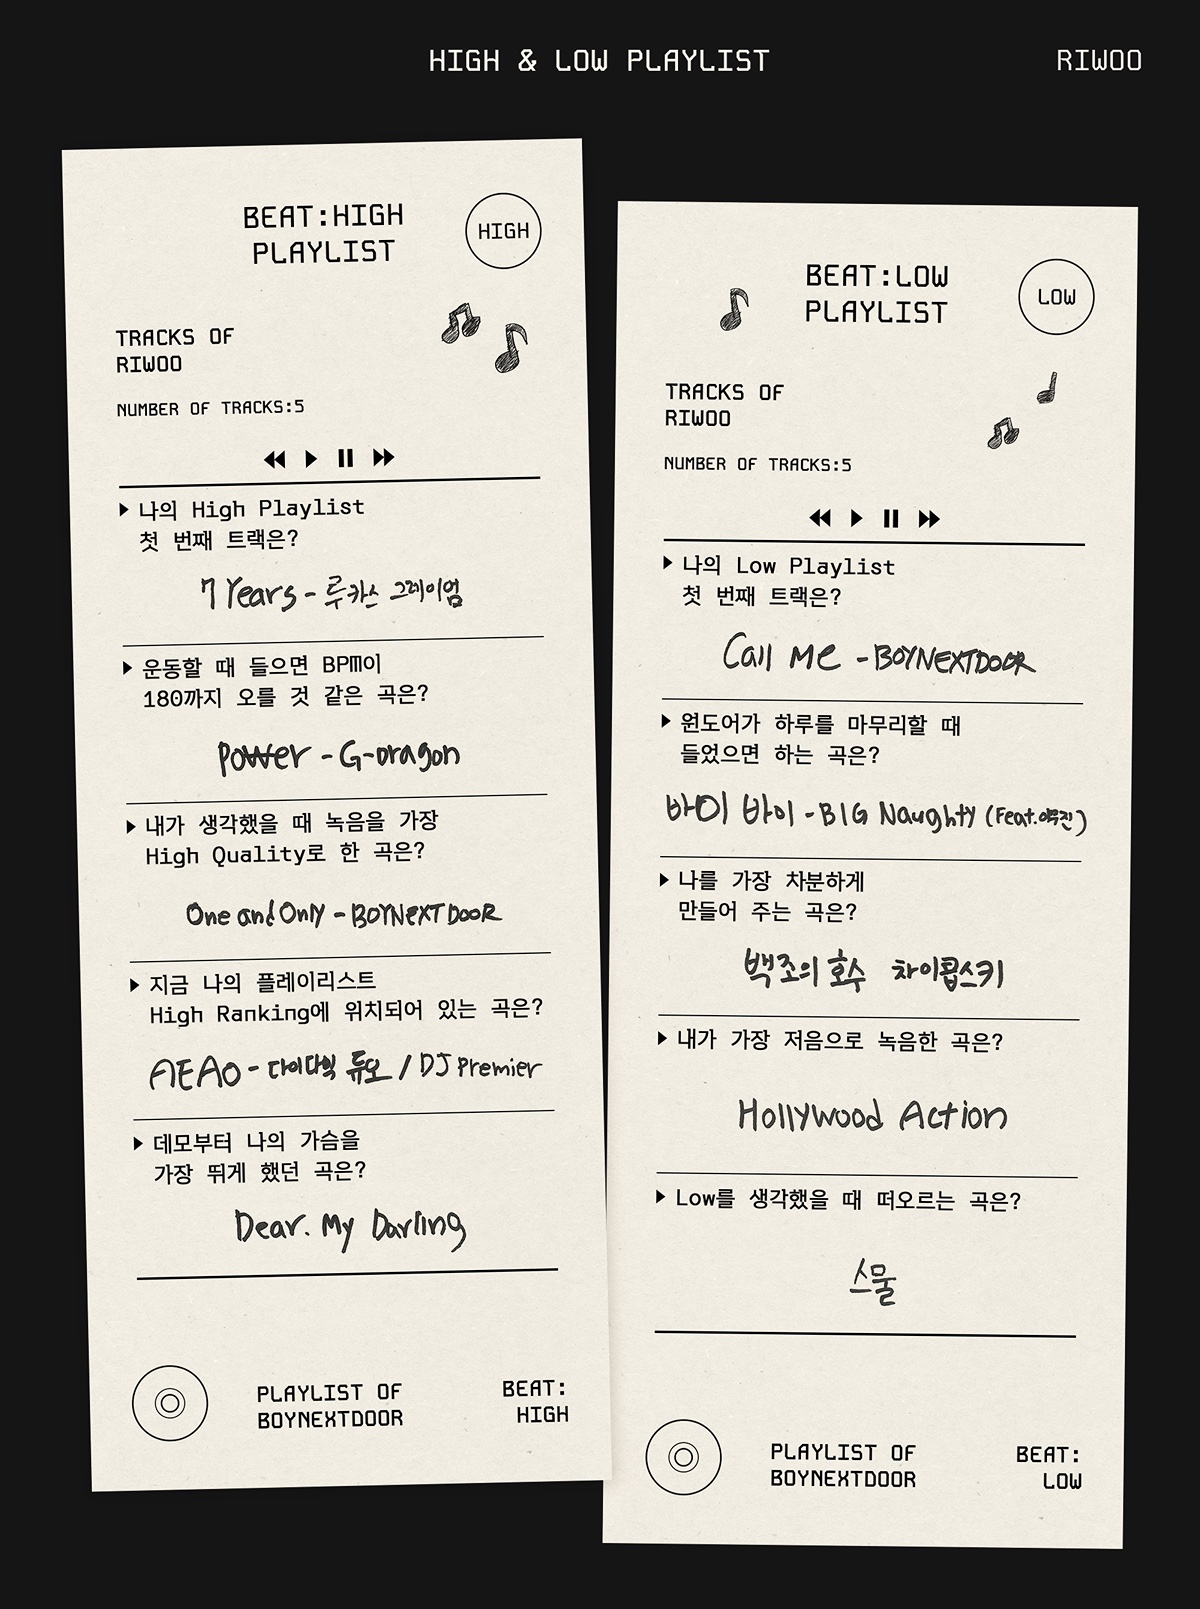 HIGH & LOW PLAYLIST
RIWOO
BEAT:HIGH
PLAYLIST
HIGH
TRACKS OF
RIWOO
NUMBER OF TRACKS:5
나의 High Playlist
첫 번째 트랙은?
7 Years - 루카스 그레이엄
운동할 때 들으면 BPM이
180까지 오를 것 같은 곡은?
Power - G-Dragon
내가 생각했을 때 녹음을 가장
High Quality로 한 곡은?
One and Only - BOYNEXTDOOR
지금 나의 플레이리스트
High Ranking에 위치되어 있는 곡은?
AEAO - 다이나믹 듀오 / DJ Premier
데모부터 나의 가슴을
가장 뛰게 했던 곡은?
Dear. My Darling
PLAYLIST OF
BOYNEXTDOOR
BEAT:
HIGH
BEAT:LOW
PLAYLIST
LOW
TRACKS OF
RIWOO
NUMBER OF TRACKS:5
나의 Low Playlist
첫 번째 트랙은?
Call Me - BOYNEXTDOOR
원도어가 하루를 마무리할 때
들었으면 하는 곡은?
바이 바이 - BIG Naughty (Feat.이무진)
나를 가장 차분하게
만들어 주는 곡은?
백조의 호수 차이콥스키
내가 가장 저음으로 녹음한 곡은?
Hollywood Action
Low를 생각했을 때 떠오르는 곡은?
스물
PLAYLIST OF
BOYNEXTDOOR
BEAT:
LOW